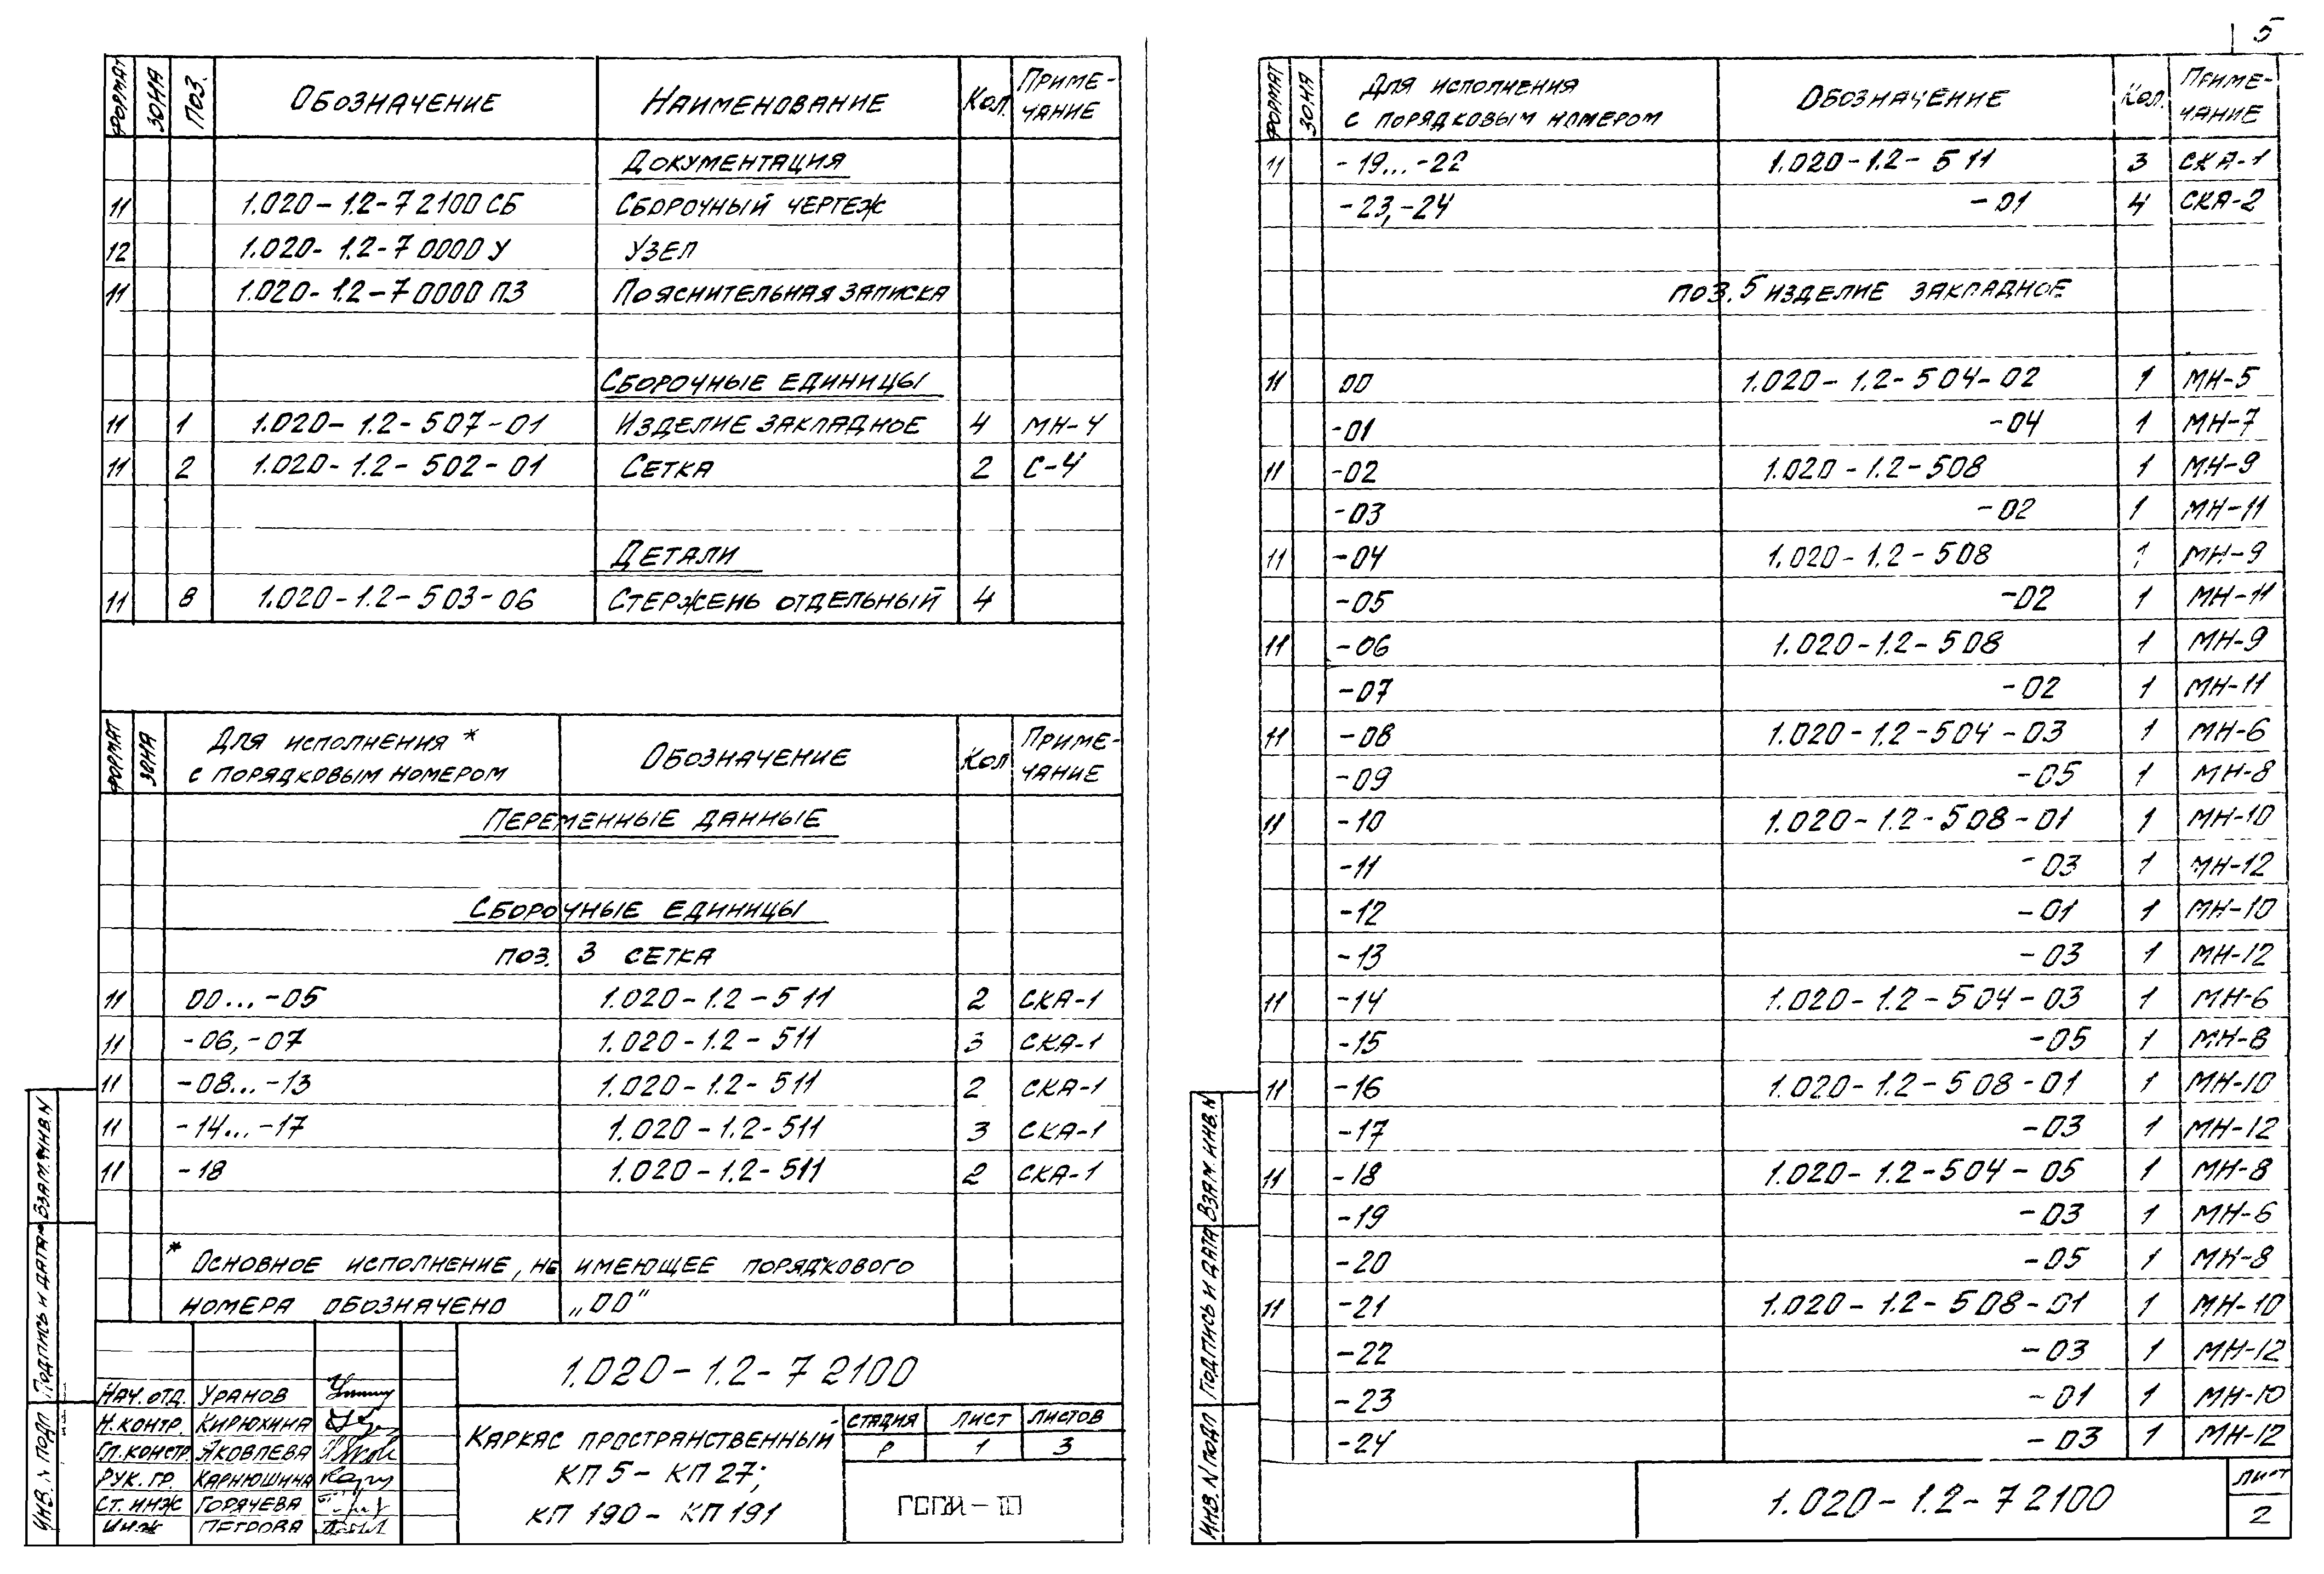 5
ФОРМАТ ЗОНА ПОЗ. ОБОЗНАЧЕНИЕ НАИМЕНОВАНИЕ КОЛ. ПРИМЕ-ЧАНИЕ
ДОКУМЕНТАЦИЯ
11 1.020-1.2-7 2100 СБ СБОРОЧНЫЙ ЧЕРТЕЖ
12 1.020-1.2-7 0000 У УЗЕЛ
11 1.020-1.2-7 0000 ПЗ ПОЯСНИТЕЛЬНАЯ ЗАПИСКА
СБОРОЧНЫЕ ЕДИНИЦЫ
11 1 1.020-1.2-507-01 ИЗДЕЛИЕ ЗАКЛАДНОЕ 4 МН-4
11 2 1.020-1.2-502-01 СЕТКА 2 С-4
ДЕТАЛИ
11 8 1.020-1.2-503-06 СТЕРЖЕНЬ ОТДЕЛЬНЫЙ 4
ФОРМАТ ЗОНА ДЛЯ ИСПОЛНЕНИЯ * С ПОРЯДКОВЫМ НОМЕРОМ ОБОЗНАЧЕНИЕ КОЛ ПРИМЕ-ЧАНИЕ
ПЕРЕМЕННЫЕ ДАННЫЕ
СБОРОЧНЫЕ ЕДИНИЦЫ
ПОЗ. 3 СЕТКА
11 00...-05 1.020-1.2-511 2 СКА-1
11 -06,-07 1.020-1.2-511 3 СКА-1
11 -08...-13 1.020-1.2-511 2 СКА-1
11 -14...-17 1.020-1.2-511 3 СКА-1
11 -18 1.020-1.2-511 2 СКА-1
* ОСНОВНОЕ ИСПОЛНЕНИЕ, НЕ ИМЕЮЩЕЕ ПОРЯДКОВОГО
НОМЕРА ОБОЗНАЧЕНО „00"
1.020-1.2-7 2100
НАЧ.ОТД. УРАНОВ
Н.КОНТР. КИРЮХИНА
ГЛ.КОНСТР. ЯКОВЛЕВА
РУК. ГР. КАРНЮШИНА
СТ. ИНЖ ГОРЯЧЕВА
ИНЖ ПЕТРОВА
КАРКАС ПРОСТРАНСТВЕННЫЙ
КП 5 - КП 27;
КП 190 - КП 191
СТАДИЯ ЛИСТ ЛИСТОВ
Р 1 3
ИНВ. N ПОДЛ ПОДПИСЬ И ДАТА ВЗАМ.ИНВ.N
ФОРМАТ ЗОНА ДЛЯ ИСПОЛНЕНИЯ С ПОРЯДКОВЫМ НОМЕРОМ ОБОЗНАЧЕНИЕ КОЛ. ПРИМЕ-ЧАНИЕ
11 -19...-22 1.020-1.2-511 3 СКА-1
-23,-24 -01 4 СКА-2
ПОЗ. 5 ИЗДЕЛИЕ ЗАКЛАДНОЕ
11 00 1.020-1.2-504-02 1 МН-5
-01 -04 1 МН-7
11 -02 1.020-1.2-508 1 МН-9
-03 -02 1 МН-11
11 -04 1.020-1.2-508 1 МН-9
-05 -02 1 МН-11
11 -06 1.020-1.2-508 1 МН-9
-07 -02 1 МН-11
11 -08 1.020-1.2-504-03 1 МН-6
-09 -05 1 МН-8
11 -10 1.020-1.2-508-01 1 МН-10
-11 -03 1 МН-12
-12 -01 1 МН-10
-13 -03 1 МН-12
11 -14 1.020-1.2-504-03 1 МН-6
-15 -05 1 МН-8
11 -16 1.020-1.2-508-01 1 МН-10
-17 -03 1 МН-12
11 -18 1.020-1.2-504-05 1 МН-8
-19 -03 1 МН-6
-20 -05 1 МН-8
11 -21 1.020-1.2-508-01 1 МН-10
-22 -03 1 МН-12
-23 -01 1 МН-10
-24 -03 1 МН-12
1.020-1.2-7 2100
ЛИСТ
2
ИНВ. N ПОДЛ ПОДПИСЬ И ДАТА ВЗАМ. ИНВ. N